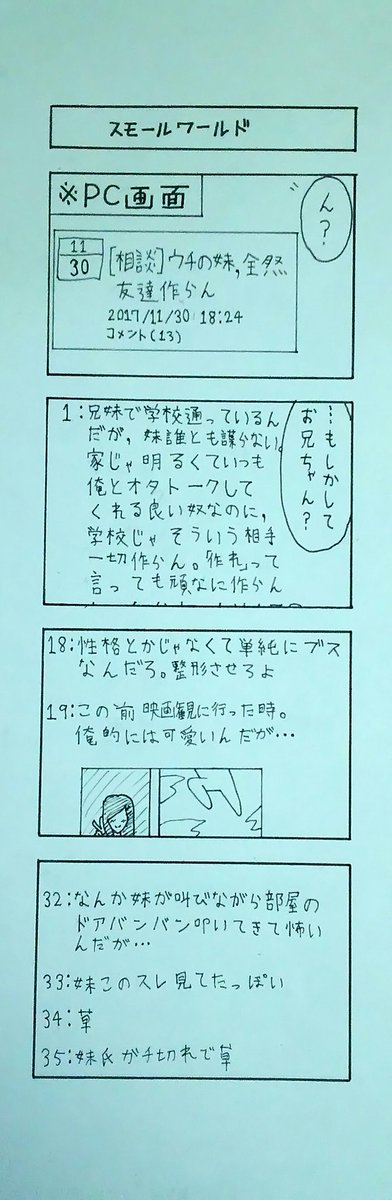 スモールワールド
※PC画面
ん?
11
30
[相談]ウチの妹,全然
友達作らん
2017/11/30 18:24
コメント(13)
…もしかして
お兄ちゃん?
1:兄妹で学校通っているん
だが,妹誰とも謀らない。
家じゃ明るくていつも
俺とオタトークして
くれる良い奴なのに,
学校じゃそういう相手
一切作らん。「作れ」って
言っても頑なに作らん
18:性格とかじゃなくて単純にブス
なんだろ。整形させろよ
19:この前映画観に行った時。
俺的には可愛いんだが…
32:なんか妹が叫びながら部屋の
ドアバンバン叩いてきて怖い
んだが…
33:妹このスレ見てたっぽい
34:草
35:妹氏ガチ切れで草